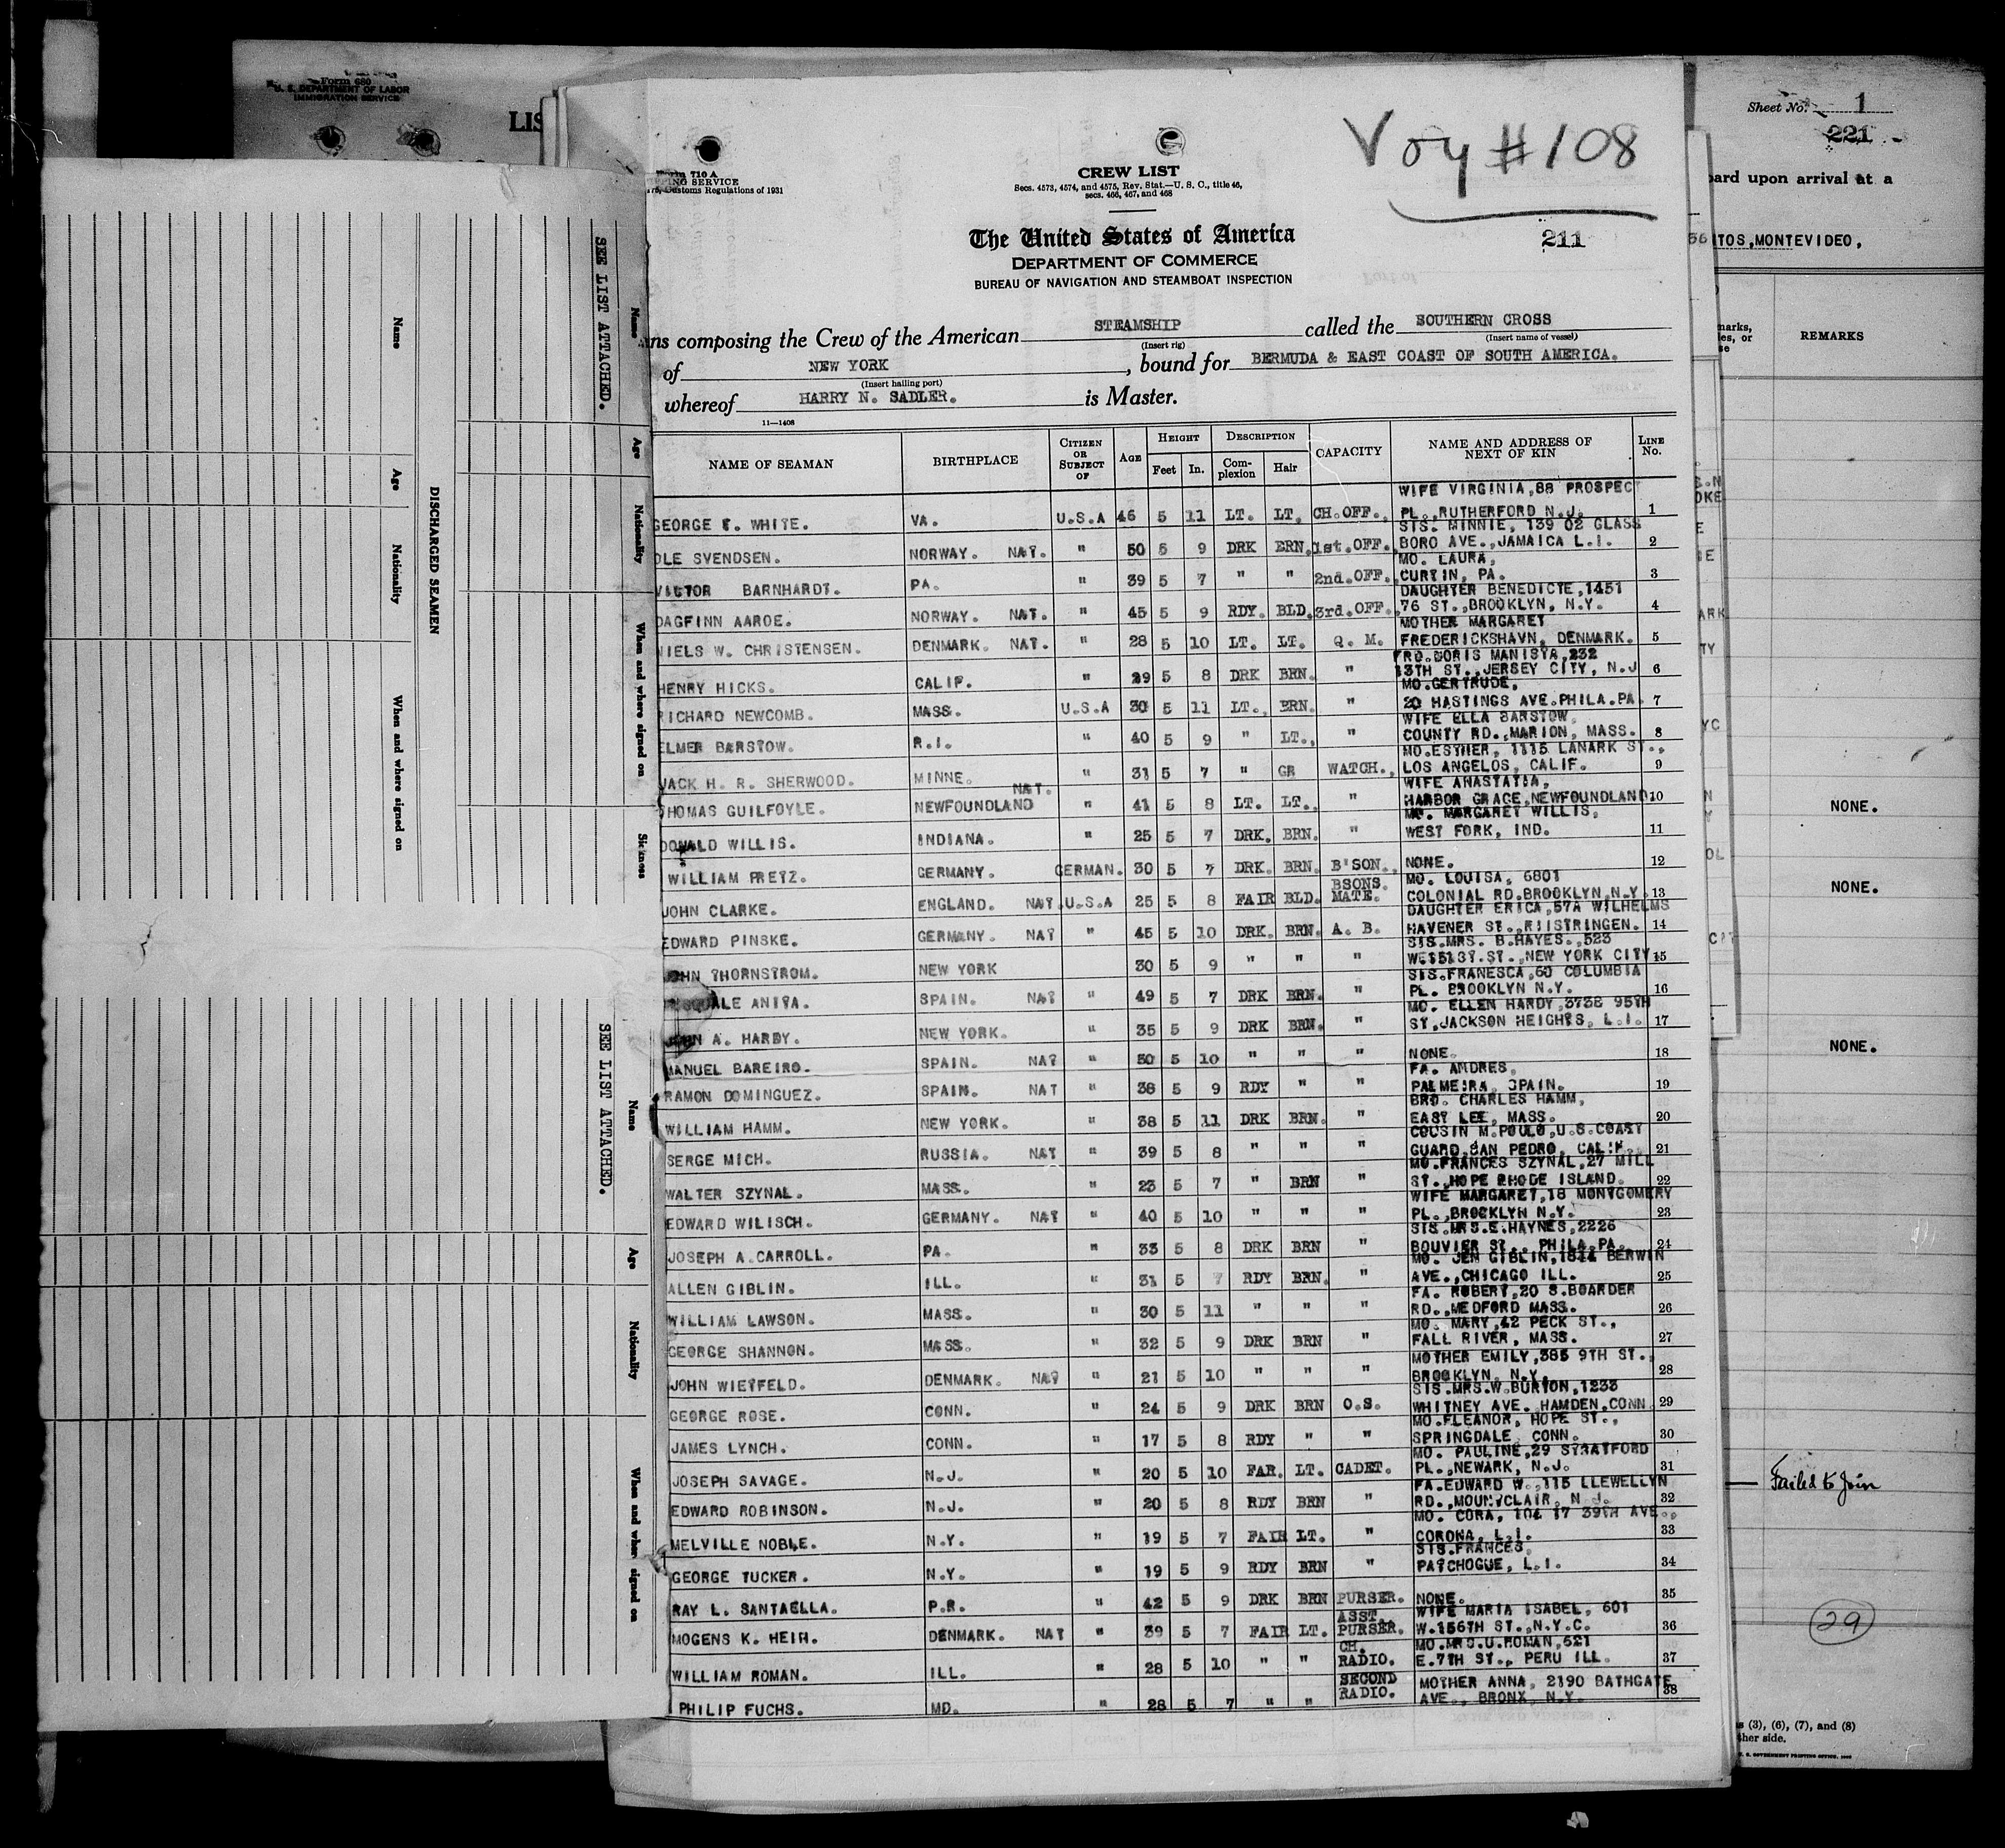 Form 680
U. S. DEPARTMENT OF LABOR
IMMIGRATION SERVICE
LIS
Sheet No. 1
221
board upon arrival at a
TOS, MONTEVIDEO,
REMARKS
NONE.
NONE.
NONE.
Failed to Join
29
s (3), (6), (7), and (8)
ther side.
SEE LIST ATTACHED.
Name
Age
Nationality
When and where signed on
Sickness
DISCHARGED SEAMEN
Name
Age
Nationality
When and where signed on
SEE LIST ATTACHED.
Name
Age
Nationality
When and where signed on
Voy # 108
Form 710 A
ING SERVICE
Customs Regulations of 1931
CREW LIST
Secs. 4573, 4574, and 4575, Rev. Stat.—U. S. C., title 46,
secs. 466, 467, and 468
211
The United States of America
DEPARTMENT OF COMMERCE
BUREAU OF NAVIGATION AND STEAMBOAT INSPECTION
ns composing the Crew of the American STEAMSHIP called the SOUTHERN CROSS
(Insert rig) (Insert name of vessel)
of NEW YORK, bound for BERMUDA & EAST COAST OF SOUTH AMERICA.
(Insert hailing port)
whereof HARRY N. SADLER. is Master.
11—1408
NAME OF SEAMAN BIRTHPLACE CITIZEN OR SUBJECT OF AGE HEIGHT Feet In. DESCRIPTION Complexion Hair CAPACITY NAME AND ADDRESS OF NEXT OF KIN LINE No.
GEORGE E. WHITE. VA. U.S.A 46 5 11 LT. LT. CH.OFF., WIFE VIRGINIA,88 PROSPECT PL.,RUTHERFORD N.J. 1
OLE SVENDSEN. NORWAY. NAT. " 50 5 9 DRK BRN. 1st.OFF. SIS. MINNIE, 139 02 GLASS BORO AVE.,JAMAICA L.I. 2
VICTOR BARNHARDT. PA. " 39 5 7 " " 2nd.OFF. MO. LAURA, CURTIN, PA. 3
DAGFINN AAROE. NORWAY. NAT. " 45 5 9 RDY. BLD. 3rd.OFF. DAUGHTER BENEDICTE,1451 76 ST.,BROOKLYN, N.Y. 4
NIELS W. CHRISTENSEN. DENMARK. NAT. " 28 5 10 LT. LT. Q. M. MOTHER MARGARET FREDERICKSHAVN, DENMARK. 5
HENRY HICKS. CALIF. " 29 5 8 DRK BRN. " FRD.DORIS MANISTA,232 13TH ST.,JERSEY CITY, N.J 6
RICHARD NEWCOMB. MASS. U.S.A 30 5 11 LT., BRN. " MO.GERTRUDE, 20 HASTINGS AVE.PHILA.PA. 7
ELMER BARSTOW. R.I. " 40 5 9 " LT., " WIFE ELLA BARSTOW, COUNTY RD.,MARION, MASS. 8
JACK H. R. SHERWOOD. MINNE. " 31 5 7 " GR WATCH., MO.ESTHER, 1115 LANARK ST., LOS ANGELOS, CALIF. 9
THOMAS GUILFOYLE. NEWFOUNDLAND NAT. " 41 5 8 LT. LT., " WIFE ANASTATIA, HARBOR GRACE,NEWFOUNDLAND 10
DONALD WILLIS. INDIANA. " 25 5 7 DRK. BRN. " MO. MARGARET WILLIS, WEST FORK, IND. 11
WILLIAM PRETZ. GERMANY. GERMAN. 30 5 7 DRK. BRN. B'SON. NONE. 12
JOHN CLARKE. ENGLAND. NAT. U.S.A 25 5 8 FAIR BLD. BSONS. MATE. MO. LOUISA, 6801 COLONIAL RD.BROOKLYN,N.Y. 13
EDWARD PINSKE. GERMANY. NAT " 45 5 10 DRK. BRN. A. B. DAUGHTER ERICA,57A WILHELMS HAVENER ST.,RIISTRINGEN. 14
JOHN THORNSTROM. NEW YORK 30 5 9 " " " SIS.MRS. B.HAYES.,523 ST.,NEW YORK CITY 15
ANITA. SPAIN. NAT " 49 5 7 DRK BRN. " SIS.FRANESCA,60 COLUMBIA PL. BROOKLYN N.Y. 16
JOHN A. HARDY. NEW YORK. " 35 5 9 DRK BRN. " MO. ELLEN HARDY,3738 95TH ST,JACKSON HEIGHTS, L.I. 17
MANUEL BAREIRO. SPAIN. NAT " 50 5 10 " " " NONE. 18
RAMON DOMINGUEZ. SPAIN. NAT " 38 5 9 RDY " " FA. ANDRES, PALMEIRA, SPAIN. 19
WILLIAM HAMM. NEW YORK. " 38 5 11 DRK BRN. " BRO. CHARLES HAMM, EAST LEE, MASS. 20
SERGE MICH. RUSSIA. NAT " 39 5 8 " " " COUSIN M.POULO,U.S.COAST GUARD,SAN PEDRO, CALIF. 21
WALTER SZYNAL. MASS. " 23 5 7 " BRN " MO.FRANCES SZYNAL,27 MILL ST.,HOPE RHODE ISLAND. 22
EDWARD WILISCH. GERMANY. NAT " 40 5 10 " " " WIFE MARGARET,18 MONTGOMERY PL.,BROOKLYN N.Y. 23
JOSEPH A.CARROLL. PA. " 33 5 8 DRK BRN " SIS.MRS.E.HAYNES,2226 BOUVIER ST., PHILA.PA. 24
ALLEN GIBLIN. ILL. " 31 5 7 RDY BRN. " MO. JEN GIBLIN,1844 BERWIN AVE.,CHICAGO ILL. 25
WILLIAM LAWSON. MASS. " 30 5 11 " " " FA. ROBERT,20 S.BOARDER RD.,MEDFORD MASS. 26
GEORGE SHANNON. MASS. " 32 5 9 DRK BRN " MO. MARY,42 PECK ST., FALL RIVER, MASS. 27
JOHN WIETFELD. DENMARK. NAT " 21 5 10 " " " MOTHER EMILY,385 9TH ST., BROOKLYN, N.Y. 28
GEORGE ROSE. CONN. " 24 5 9 DRK BRN O.S. SIS.MRS.W.BURTON,1233 WHITNEY AVE. HAMDEN,CONN 29
JAMES LYNCH. CONN. " 17 5 8 RDY " " MO.ELEANOR, HOPE ST., SPRINGDALE CONN. 30
JOSEPH SAVAGE. N.J. " 20 5 10 FAR. LT. CADET. MO. PAULINE,29 STRATFORD PL.,NEWARK, N.J. 31
EDWARD ROBINSON. N.J. " 20 5 8 RDY BRN " FA.EDWARD W.,115 LLEWELLYN RD.,MOUNTCLAIR, N J. 32
MELVILLE NOBLE. N.Y. " 19 5 7 FAIR LT. " MO. CORA, 104 17 39TH AVE., CORONA, L.I. 33
GEORGE TUCKER. N.Y. " 19 5 9 RDY BRN " SIS.FRANCES, PATCHOGUE, L.I. 34
RAY L. SANTAELLA. P.R. " 42 5 9 DRK BRN PURSER. NONE. 35
MOGENS K. HEIH. DENMARK. NAT " 39 5 7 FAIR LT. ASST. PURSER. WIFE MARIA ISABEL, 601 W.156TH ST.,N.Y.C. 36
WILLIAM ROMAN. ILL. " 28 5 10 " " CH. RADIO. MO.MRS.U.ROMAN,521 E.7TH ST., PERU ILL. 37
PHILIP FUCHS. MD. " 28 5 7 " " SECOND RADIO. MOTHER ANNA, 2190 BATHGATE AVE., BRONX, N.Y. 38